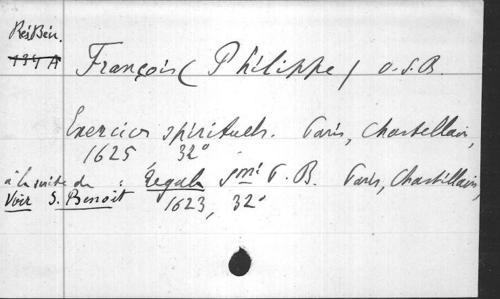 Rés Bén.
134 A
François (Philippe) O.S.B.
Exercices spirituels. Paris, Chastellain,
1625 32°
à la suite de : Regula Smi P. B. Paris, Chastillain,
Voir S. Benoit 1623, 32°